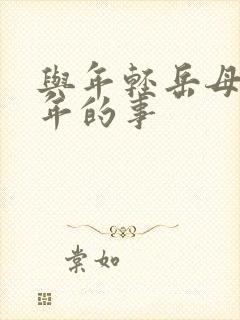 與年輕岳母
年的事
棠如